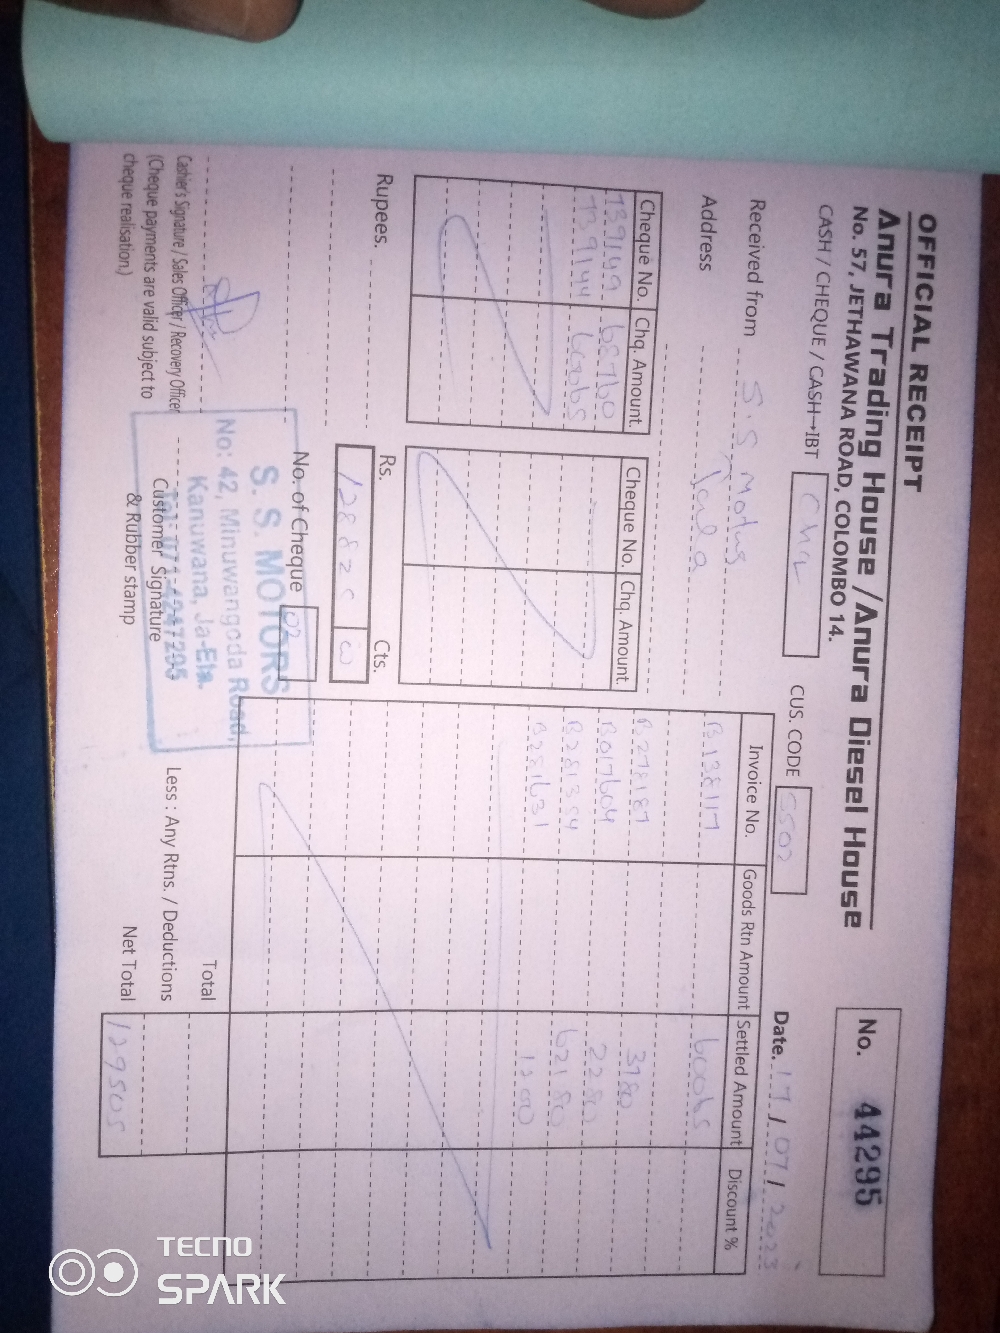 OFFICIAL RECEIPT
Anura Trading House / Anura Diesel House
No. 57, JETHAWANA ROAD, COLOMBO 14.
No. 44295
CASH / CHEQUE / CASH→IBT
CUS. CODE SS02
Date. 17 / 07 / 2023
Received from S.S. Motors
Address
Cheque No. Chq. Amount
739149 68760
739144 60065
Cheque No. Chq. Amount.
Invoice No. Goods Rtn Amount Settled Amount Discount %
B138117 60065
B278187 3780
B017604 2280
B281354 62180
B281631 1200
Rupees.
Rs. Cts.
128825
No. of Cheque 02
Cashier's Signature / Sales Officer / Recovery Officer
(Cheque payments are valid subject to
cheque realisation.)
S. S. MOTORS
No: 42, Minuwangoda Road,
Kanuwana, Ja-Ela.
Tel: 071-4247295
Customer Signature
& Rubber stamp
Total
Less : Any Rtns. / Deductions
Net Total 129505
TECNO
SPARK